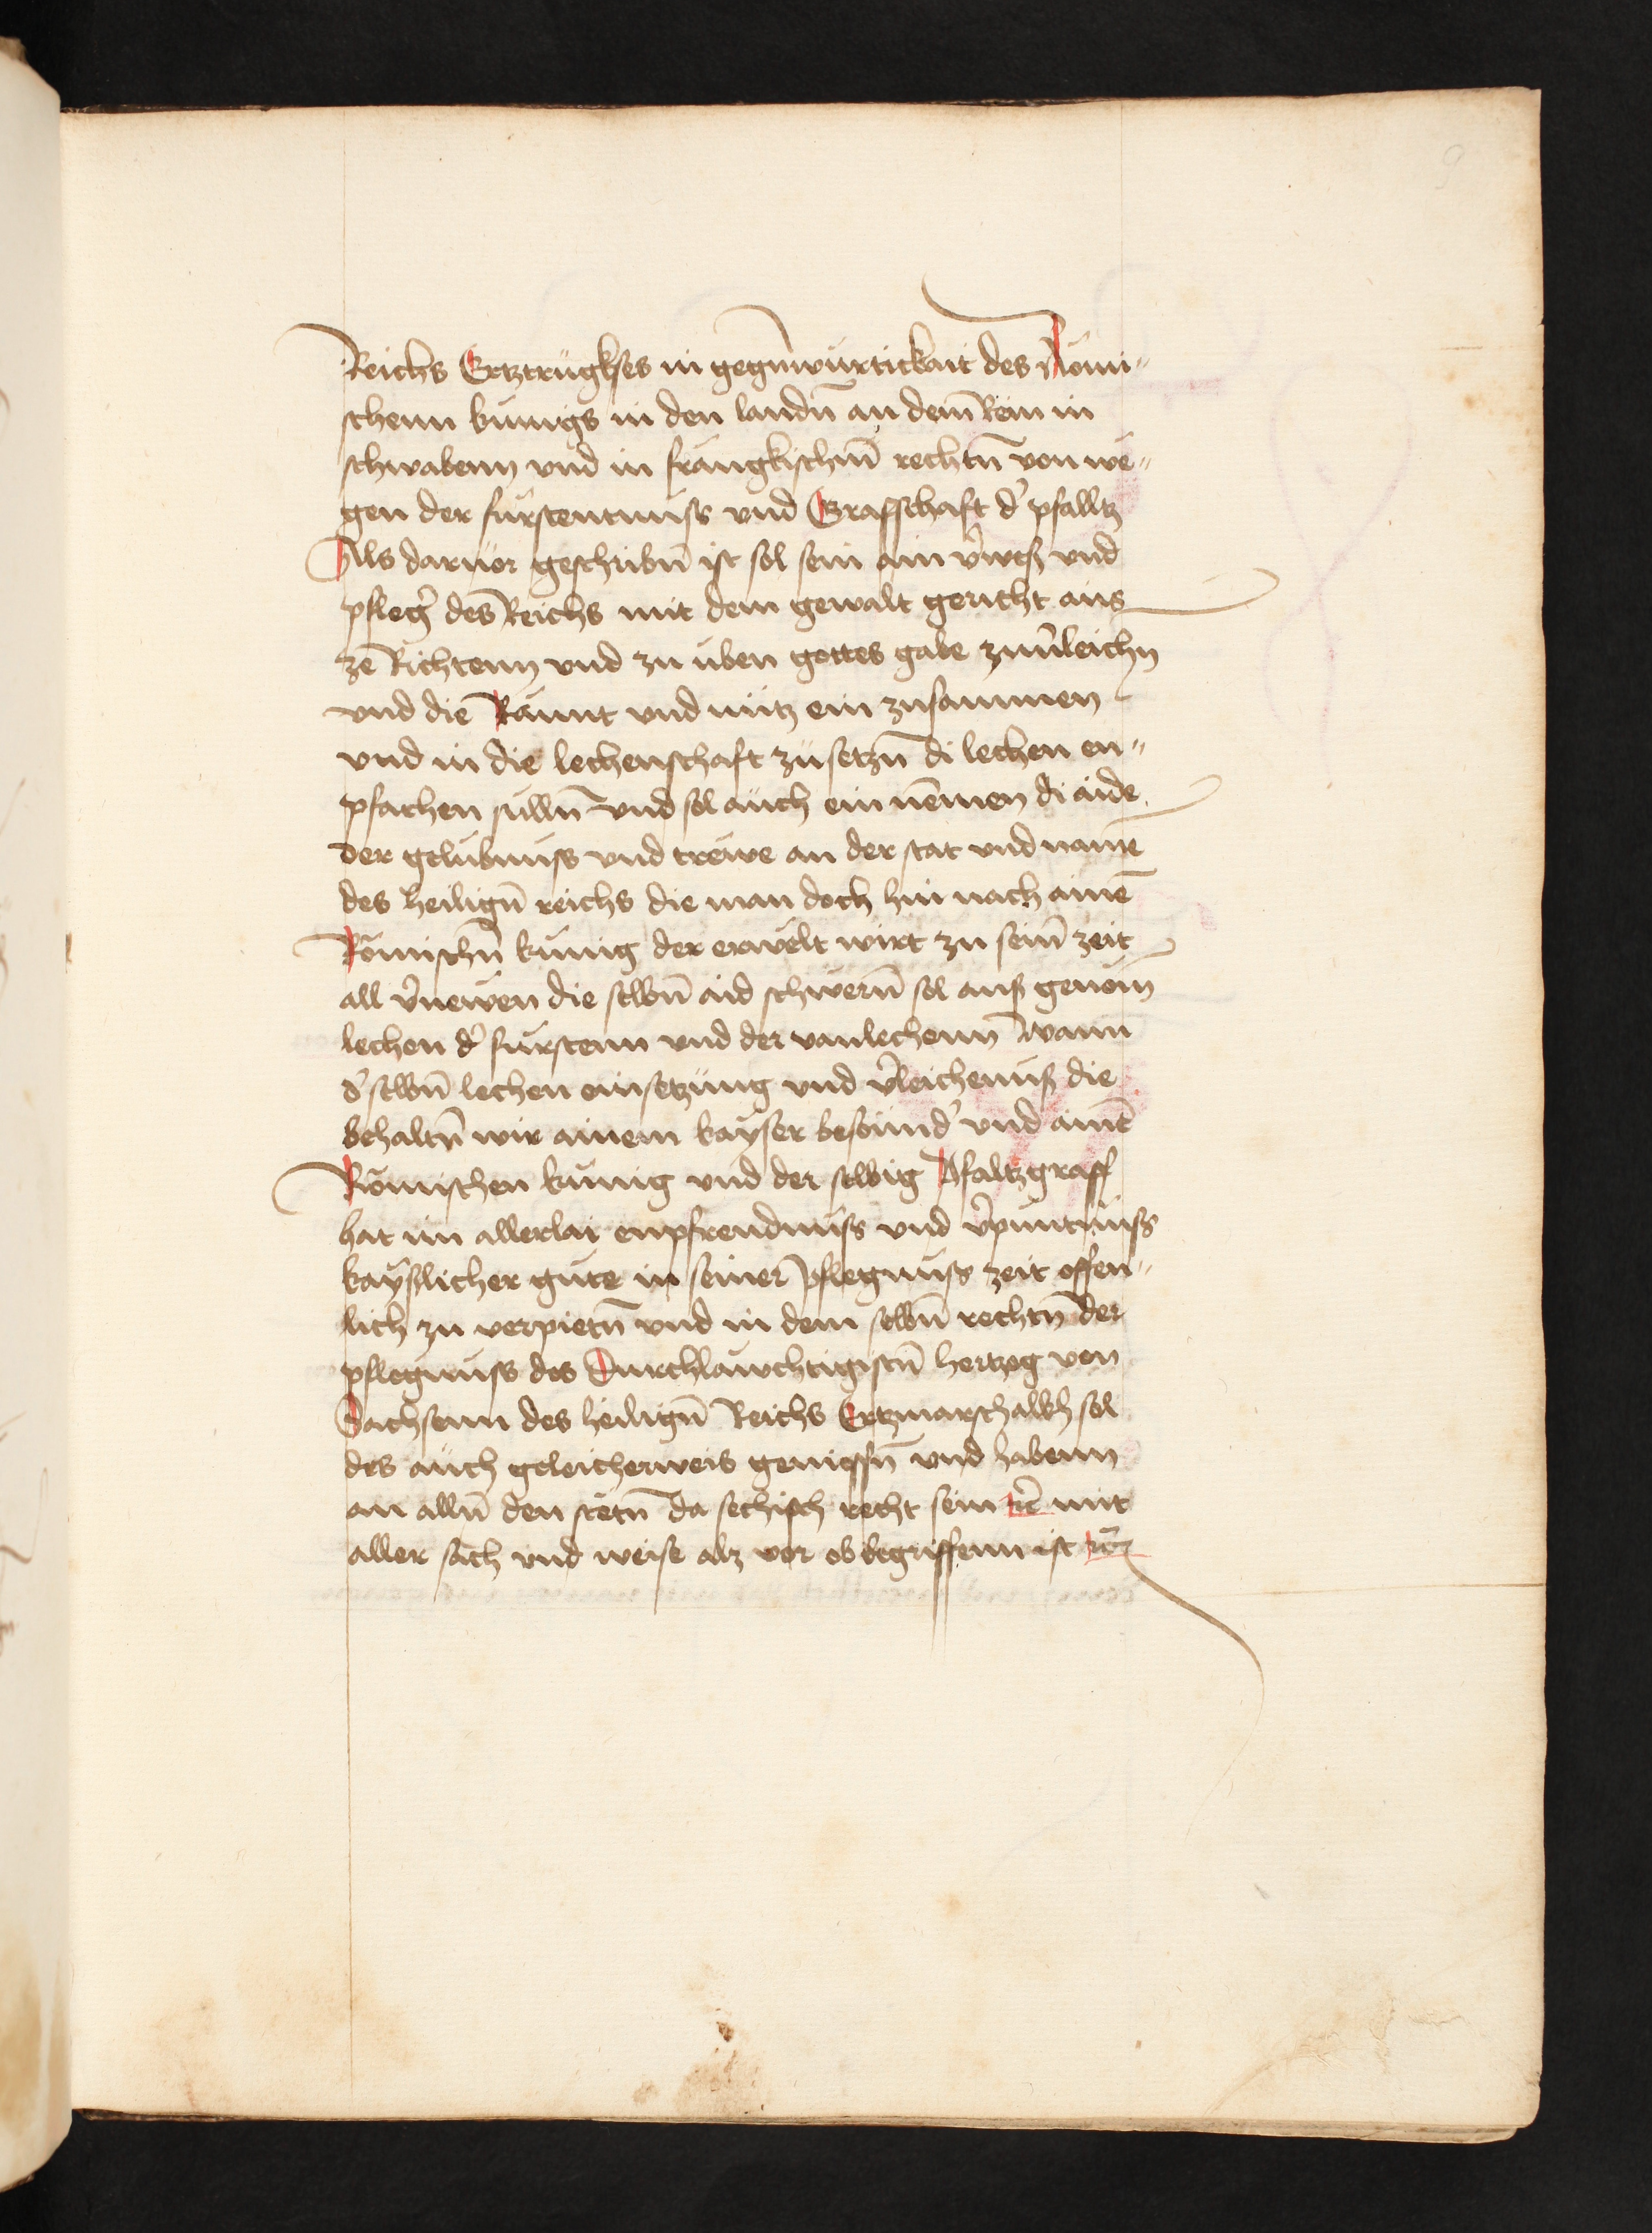 9
Reichs Ertztrugkses in gegn̄wurtickait des Romi„
schenn kunigs in den landn̄ an dem Rein in
schwabenn vnd in frangkischm̄ rechtn̄ von we„
gen der furstentnuss vnd Graffschaft d' pfalltz
Als daruor geschribn̄ ist sol sein ain v̉weß vnd
pfleg' des Reichs mit dem gewalt gericht aus
ze Richtenn vnd zu uben gottes gabe zuu̓leichn̄
vnd die Raumt vnd nutz ein zusammen
vnd in die lechenschaft zusetzn̄ di lechen en„
pfachen sulln̄ vnd sol auch ein nemen di aide
der gelubnuss vnd trewe an der stat vnd name
des heilign̄ reichs die man doch hin nach ainē
Romischn̄ kunig der erwelt wirt zu sein̄ zeit
all v̉newen die selbn̄ aid schwern̄ sol auß genom̄
lechen d' furstenn vnd der vanlechenn Wann
d' selbn̄ lechen einsetzung vnd v̉leichenuß die
behaltn̄ wir ainem kayser besound' vnd ainē
Romischen kunig vnd der selbig Pfaltzgraff
hat im allerlai enpfrendnuss vnd v̉puntnuss
kayslicher gute in seiner pflegnuss zeit offen„
lich zu verpietn̄ vnd in dem selbn̄ rechtn̄ der
pflegnuss des Durchlauchtigistn̄ hertzog von
Sachsenn des heilign̄ Reichs Ertzmarschalkh sol
des auch geleicherweis geniessn̄ vnd habenn
an alln̄ den stetn̄ da sechsisch recht sein rc̄ mit
aller sach vnd weise alz vor ob begriffenn ist rc̄